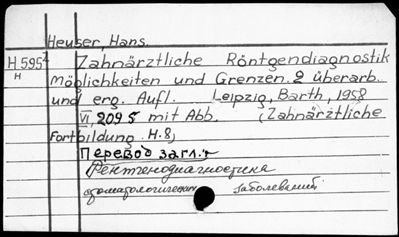 Heuser, Hans.
H 595² Zahnärztliche Röntgendiagnostik
H Möglichkeiten und Grenzen. 2 überarb.
und erg. Aufl. Leipzig, Barth, 1958
VI, 209 S mit Abb. (Zahnärztliche
Fortbildung. H. 8)
Перевод загл.:
Рентгенодиагностика
стоматологических заболеваний